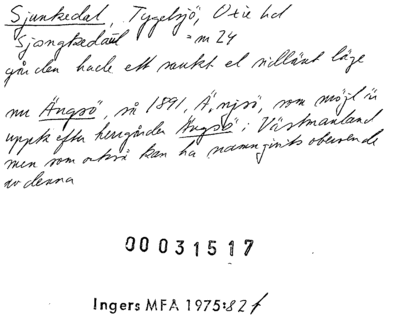 Sjunkedal, Tygelsjö, Oxie hd
Sjongkedaal = m 24
gården hade ett sankt el sidlänt läge
nu Ängsö, så 1891, Ängsö, som möjl är
uppk efter herrgården Ängsö i Västmanland
men som också kan ha namngivits oberoende
av denna
00031517
Ingers MFA 1975:82 f